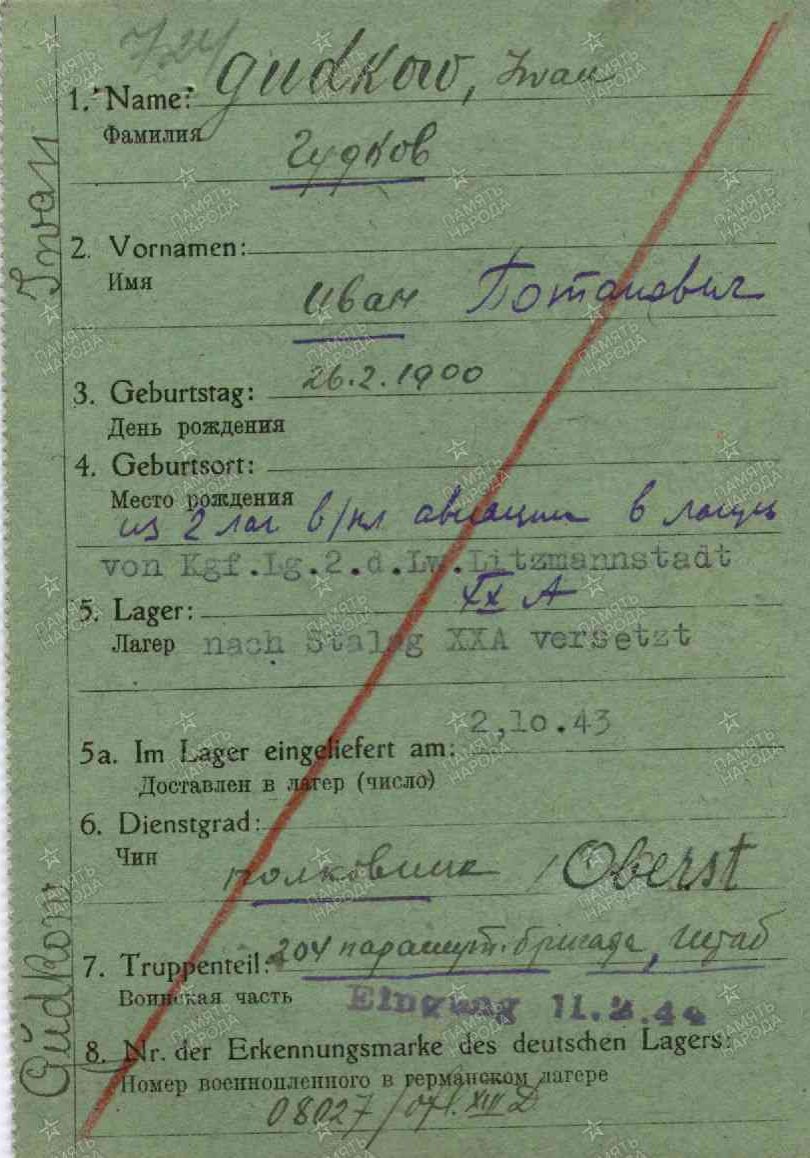 Gudkow, Iwan
1. Name:
Фамилия
Гудков
2. Vornamen:
Имя
Иван Потапович
3. Geburtstag: 26.2.1900
День рождения
4. Geburtsort:
Место рождения
из 2 лаг в/пл авиации в лагерь
von Kgf.Lg.2.d.Lw.Litzmannstadt
XX А
5. Lager:
Лагер nach Stalag XXA versetzt
2,10.43
5a. Im Lager eingeliefert am:
Доставлен в лагер (число)
6. Dienstgrad:
Чин
полковник / Oberst
7. Truppenteil: 204 парашут. бригада, штаб
Воинская часть Eingang
8. Nr. der Erkennungsmarke des deutschen Lagers:
Номер военнопленного в германском лагере
08027 / Ofl. XIII D
Iwan
Gudkow
ПАМЯТЬ НАРОДА